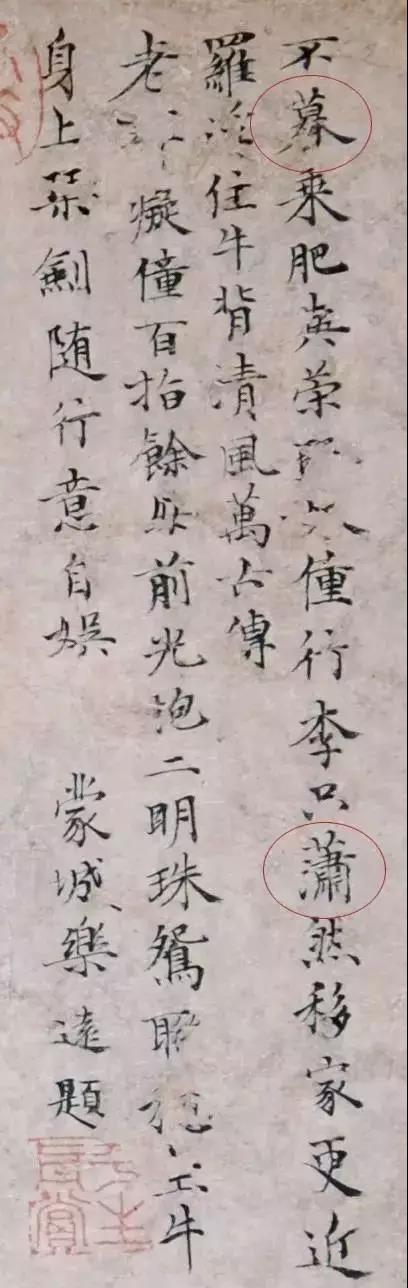 不慕乘肥與榮僮行李只蕭然移家更近
羅浮住牛背清風萬古傳
老癡僮百指餘具前光泡二明珠鴛聯穩坐牛
身上琴劍随行意自娛 蒙城樂遠題